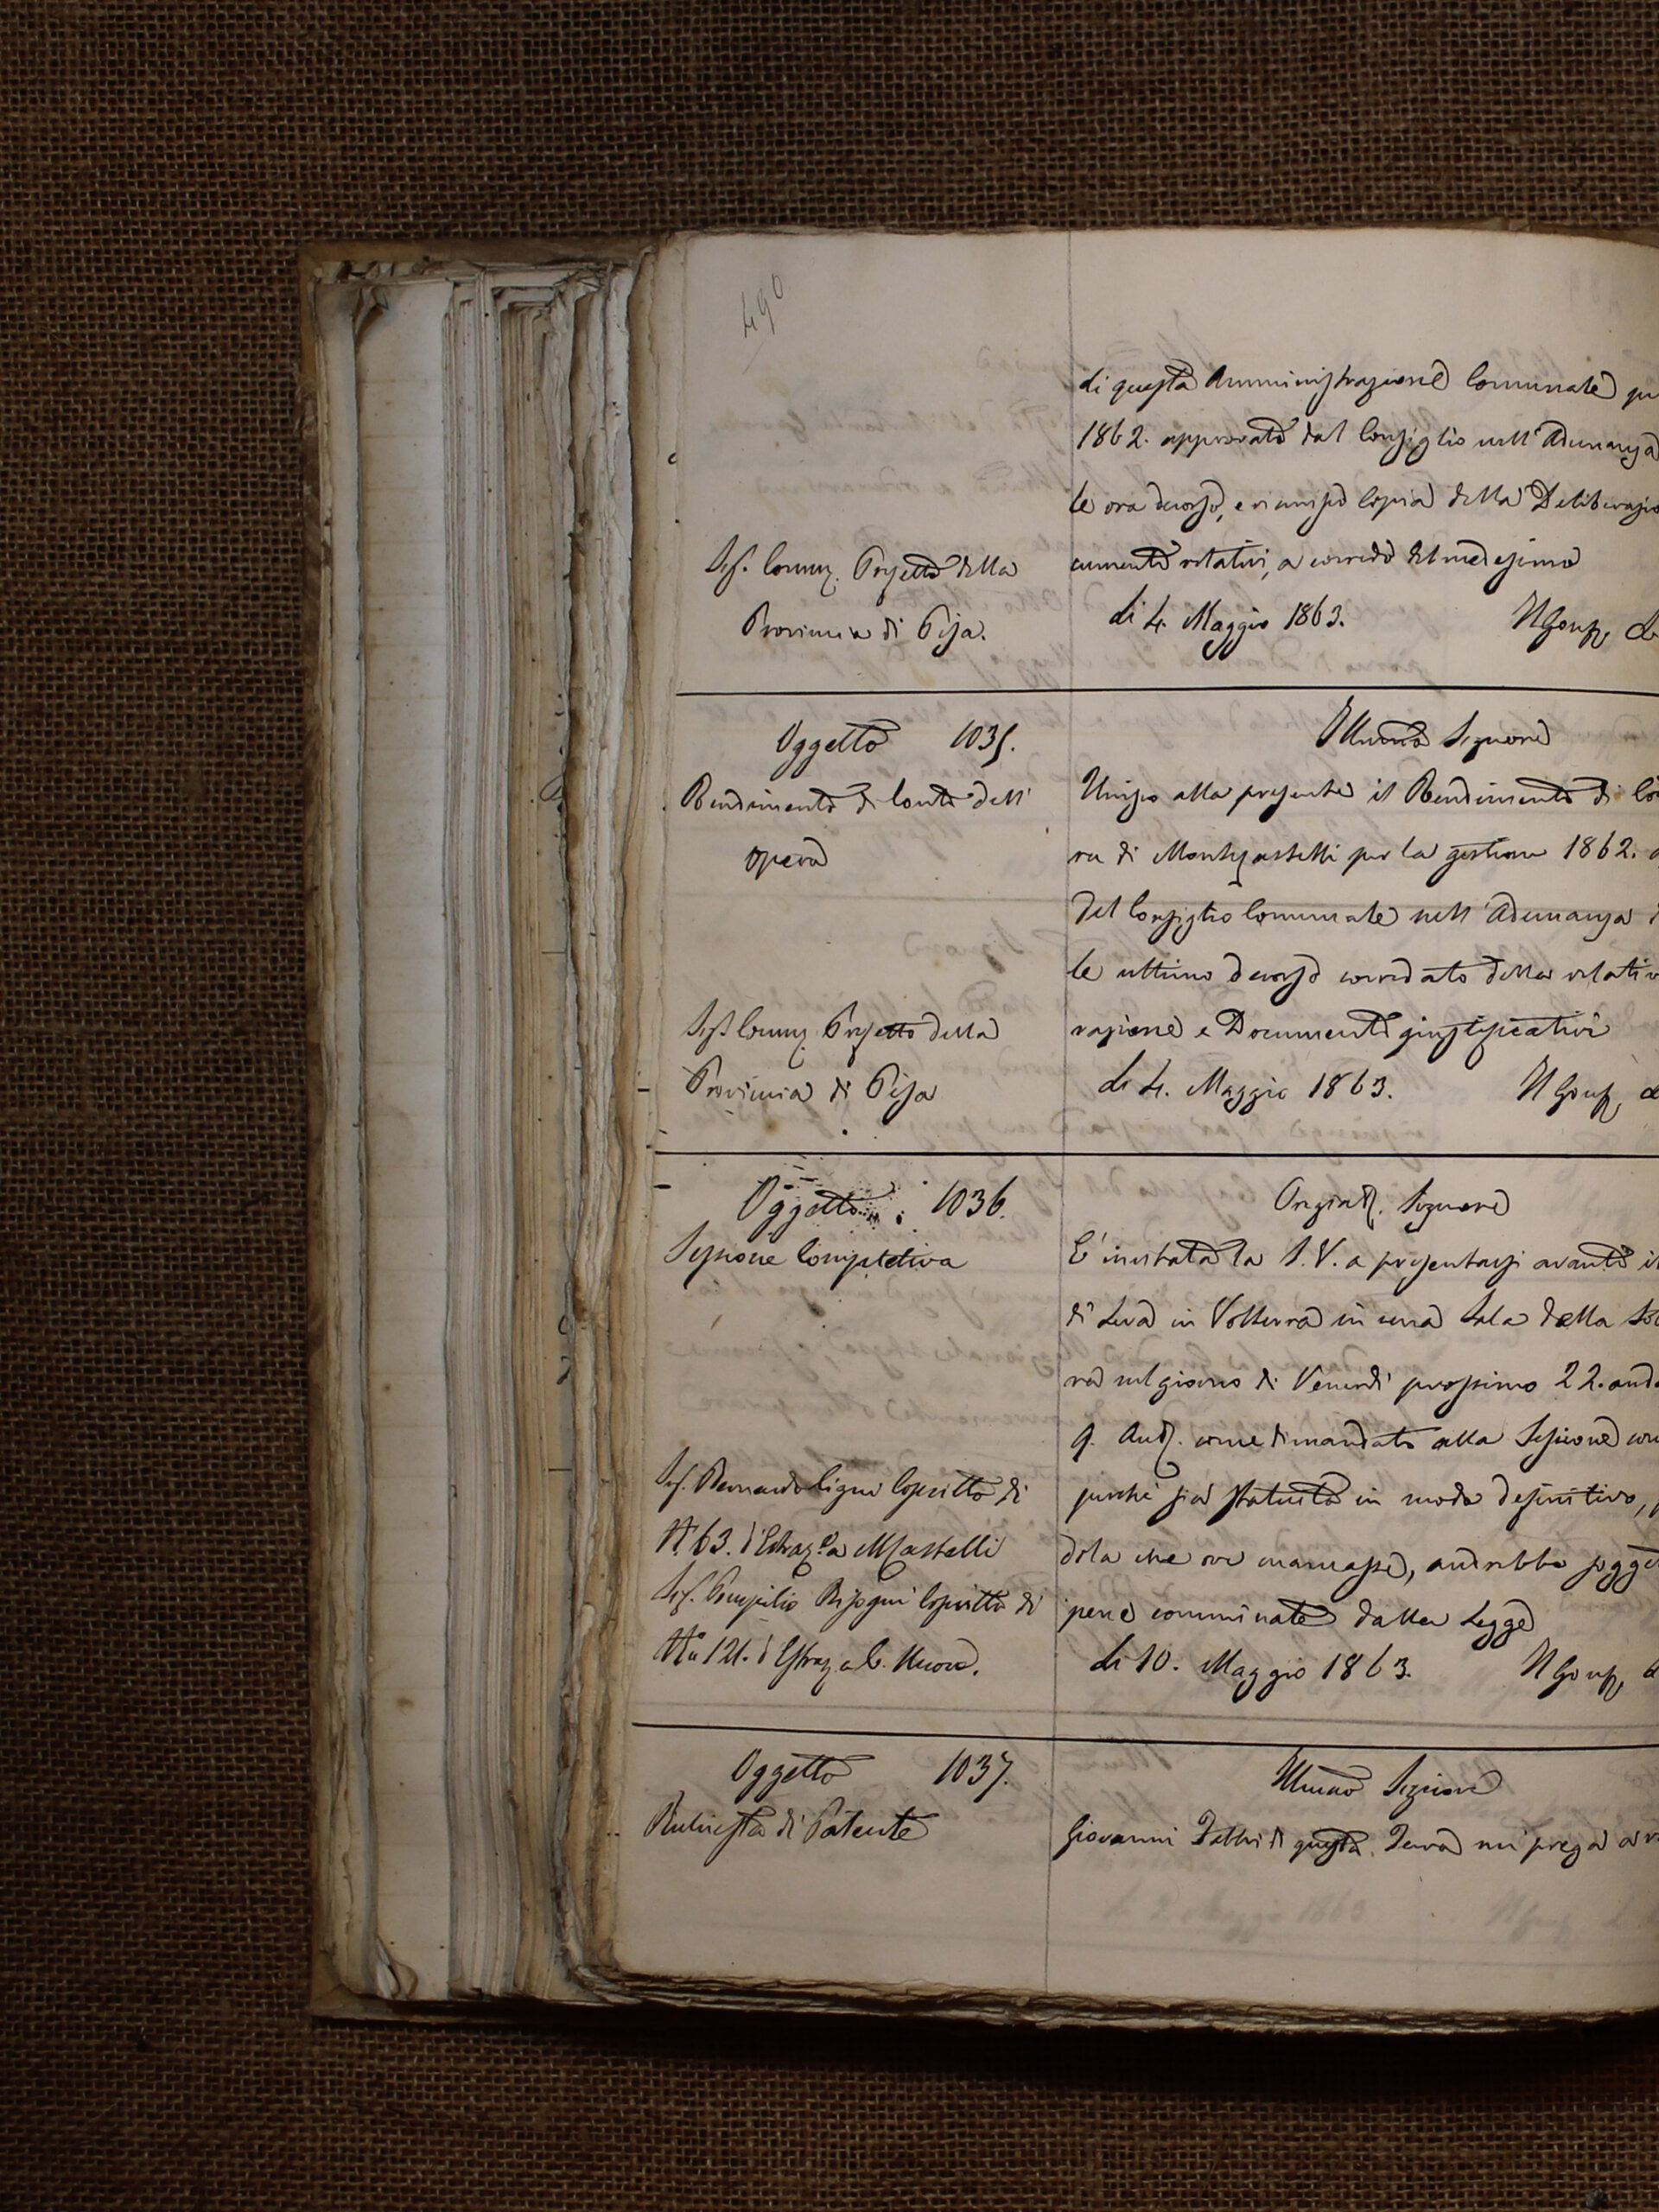 490
di questa Amministrazione Comunale
1862. approvato dal Consiglio nell'Adunanza
le ora decorso, e rimesso copia della Deliberazio
cumenti relativi, a corredo del medesimo
Sig. Prefetto della
Provincia di Pisa.
li 4. Maggio 1863. Il Gonf.
Oggetto 1035.
Rendimento di Conto dell'
Opera
Illumo Signore
Unisco alla presente il Rendimento di Co
ra di Montecastelli per la gestione 1862.
del Consiglio Comunale nell'Adunanza
le ultimo decorso corredato della relativ
razione e Documenti giustificativi
Sig. Prefetto della
Provincia di Pisa
li 4. Maggio 1863. Il Gonf.
Oggetto 1036.
Sessione Completiva
Signore
E' invitata la S. V. a presentarsi avanti il
di Leva in Volterra in una Sala della
ra nel giorno di Venerdì prossimo 22. and
9. come rimandato alla Sessione com
perchè sia statuito in modo definitivo,
dola che ove mancasse, andrebbe sogge
pene comminate dalla Legge
Sig. Bernardo Coscritto di
N. 63. d'Estraz.e a MCastelli
Sig. Pompilio Bisogni Coscritto di
No 121. d'Estraz. a C. Nuovo.
li 10. Maggio 1863. Il Gonf.
Oggetto 1037.
Richiesta di Patente
Illumo Signore
Giovanni di questa Terra mi prega